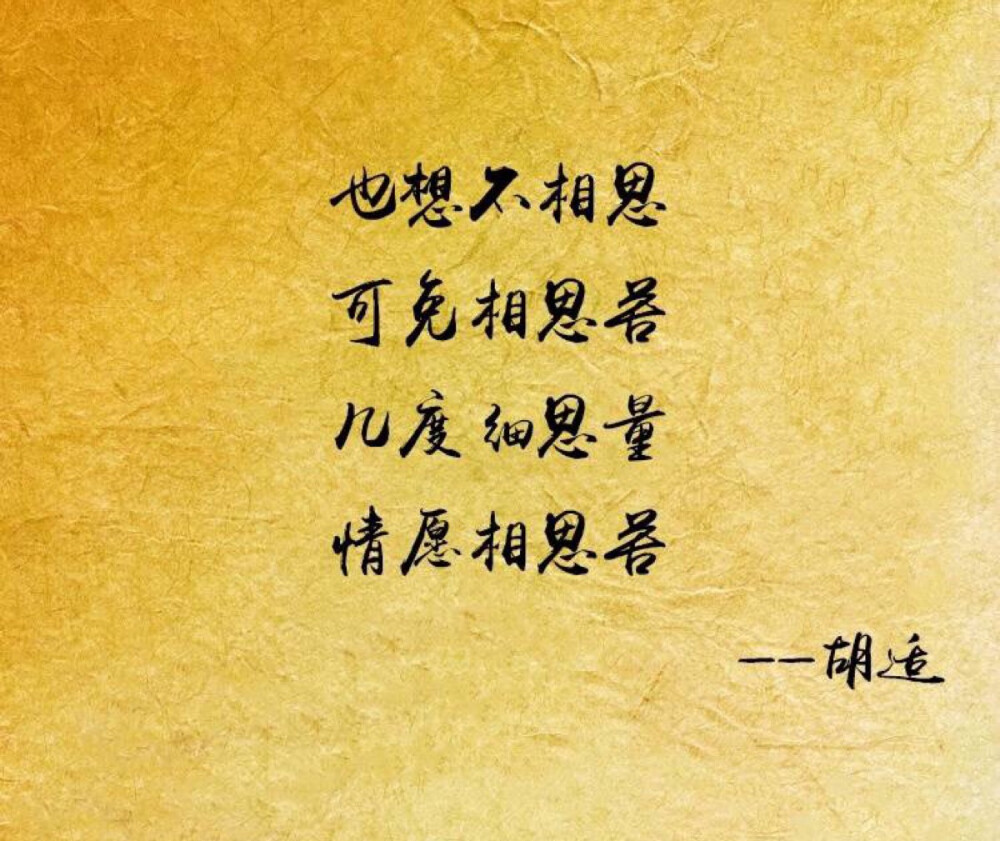 也想不相思
可免相思苦
几度细思量
情愿相思苦
--胡适